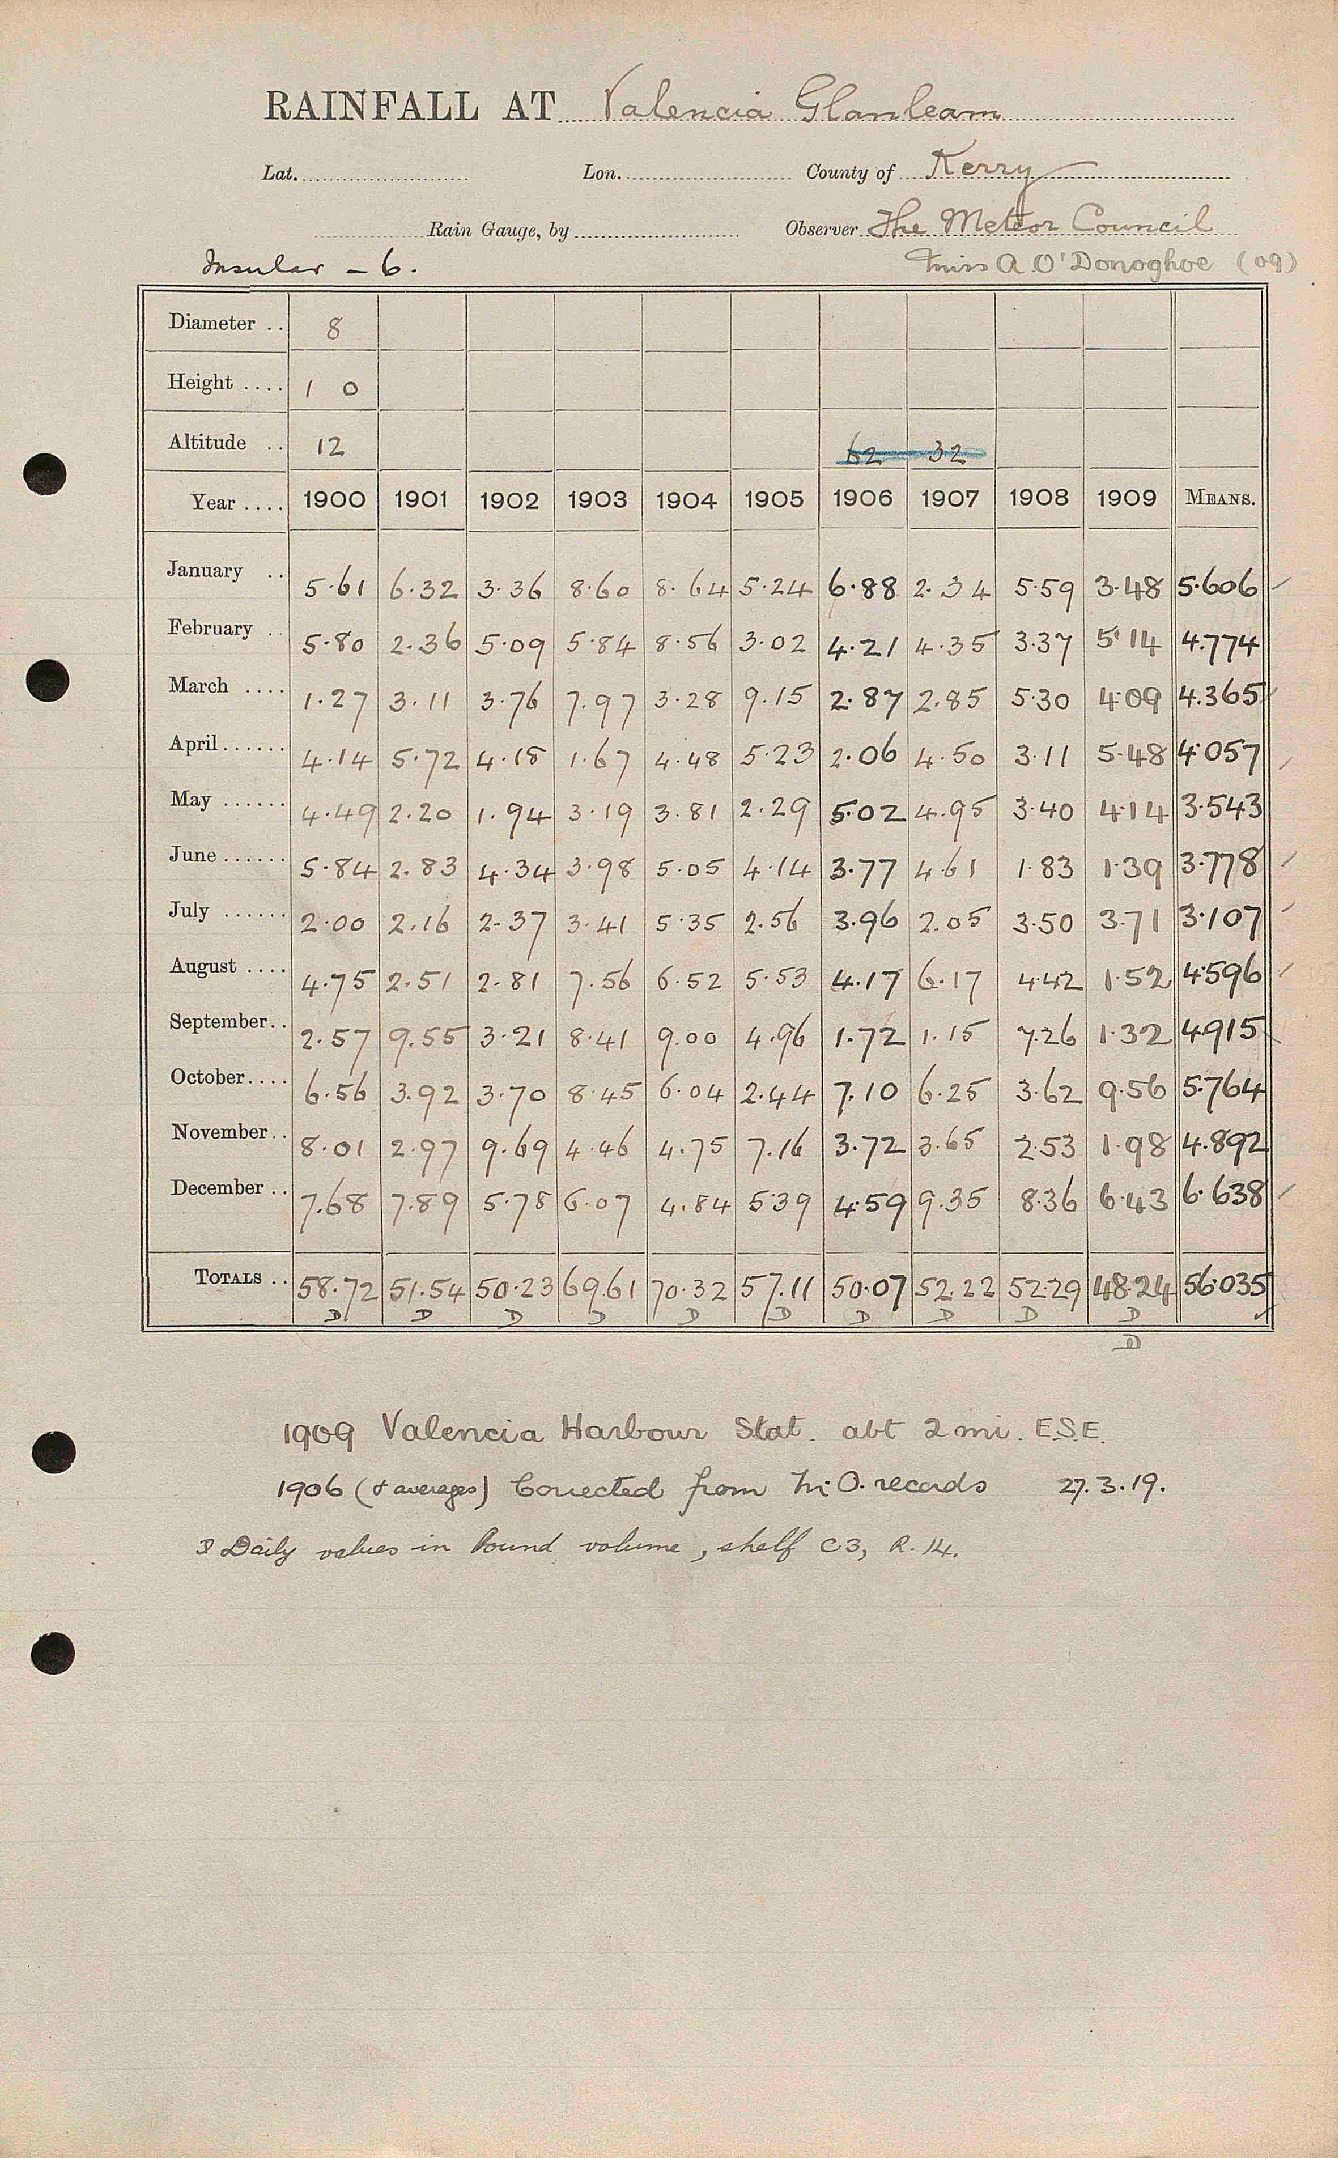 RAINFALL AT Valencia Glanleam
Lat. Lon. County of Kerry
Rain Gauge, by Observer The Meteor Council
Insular - 6. Miss A. O'Donoghoe (09)
Diameter .. 8
Height .... 1 0
Altitude .. 12 62 32
Year .... 1900 1901 1902 1903 1904 1905 1906 1907 1908 1909 MEANS.
January .. 5.61 6.32 3.36 8.60 8.64 5.24 6.88 2.34 5.59 3.48 5.606
February .. 5.80 2.36 5.09 5.84 8.56 3.02 4.21 4.35 3.37 5.14 4.774
March .... 1.27 3.11 3.76 7.97 3.28 9.15 2.87 2.85 5.30 4.09 4.365
April...... 4.14 5.72 4.18 1.67 4.48 5.23 2.06 4.50 3.11 5.48 4.057
May ...... 4.49 2.20 1.94 3.19 3.81 2.29 5.02 4.95 3.40 4.14 3.543
June ...... 5.84 2.83 4.34 3.98 5.05 4.14 3.77 4.61 1.83 1.39 3.778
July ...... 2.00 2.16 2.37 3.41 5.35 2.56 3.96 2.05 3.50 3.71 3.107
August .... 4.75 2.51 2.81 7.56 6.52 5.53 4.17 6.17 4.42 1.52 4.596
September.. 2.57 9.55 3.21 8.41 9.00 4.96 1.72 1.15 7.26 1.32 4.915
October.... 6.56 3.92 3.70 8.45 6.04 2.44 7.10 6.25 3.62 9.56 5.764
November.. 8.01 2.97 9.69 4.46 4.75 7.16 3.72 3.65 2.53 1.98 4.892
December .. 7.68 7.89 5.78 6.07 4.84 5.39 4.59 9.35 8.36 6.43 6.638
TOTALS .. 58.72 51.54 50.23 69.61 70.32 57.11 50.07 52.22 52.29 48.24 56.035
D D D D D D D D D D
D
1909 Valencia Harbour Stat. abt 2 mi. E.S.E.
1906 (& averages) Corrected from M.O. records 27.3.19.
D Daily values in bound volume, shelf C3, R.14.